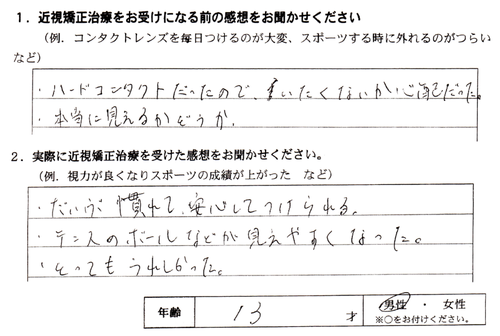 1．近視矯正治療をお受けになる前の感想をお聞かせください
（例．コンタクトレンズを毎日つけるのが大変、スポーツする時に外れるのがつらい
など）
・ハードコンタクトだったので、いたくないか心配だった。
・本当に見えるかどうか.
2．実際に近視矯正治療を受けた感想をお聞かせください。
（例．視力が良くなりスポーツの成績が上がった　など）
・だいぶ慣れて、安心してつけられる。
・テニスのボールなどが見えやすくなった。
・とってもうれしかった。
年齢　13　才　男性　・　女性
※○をお付けください。